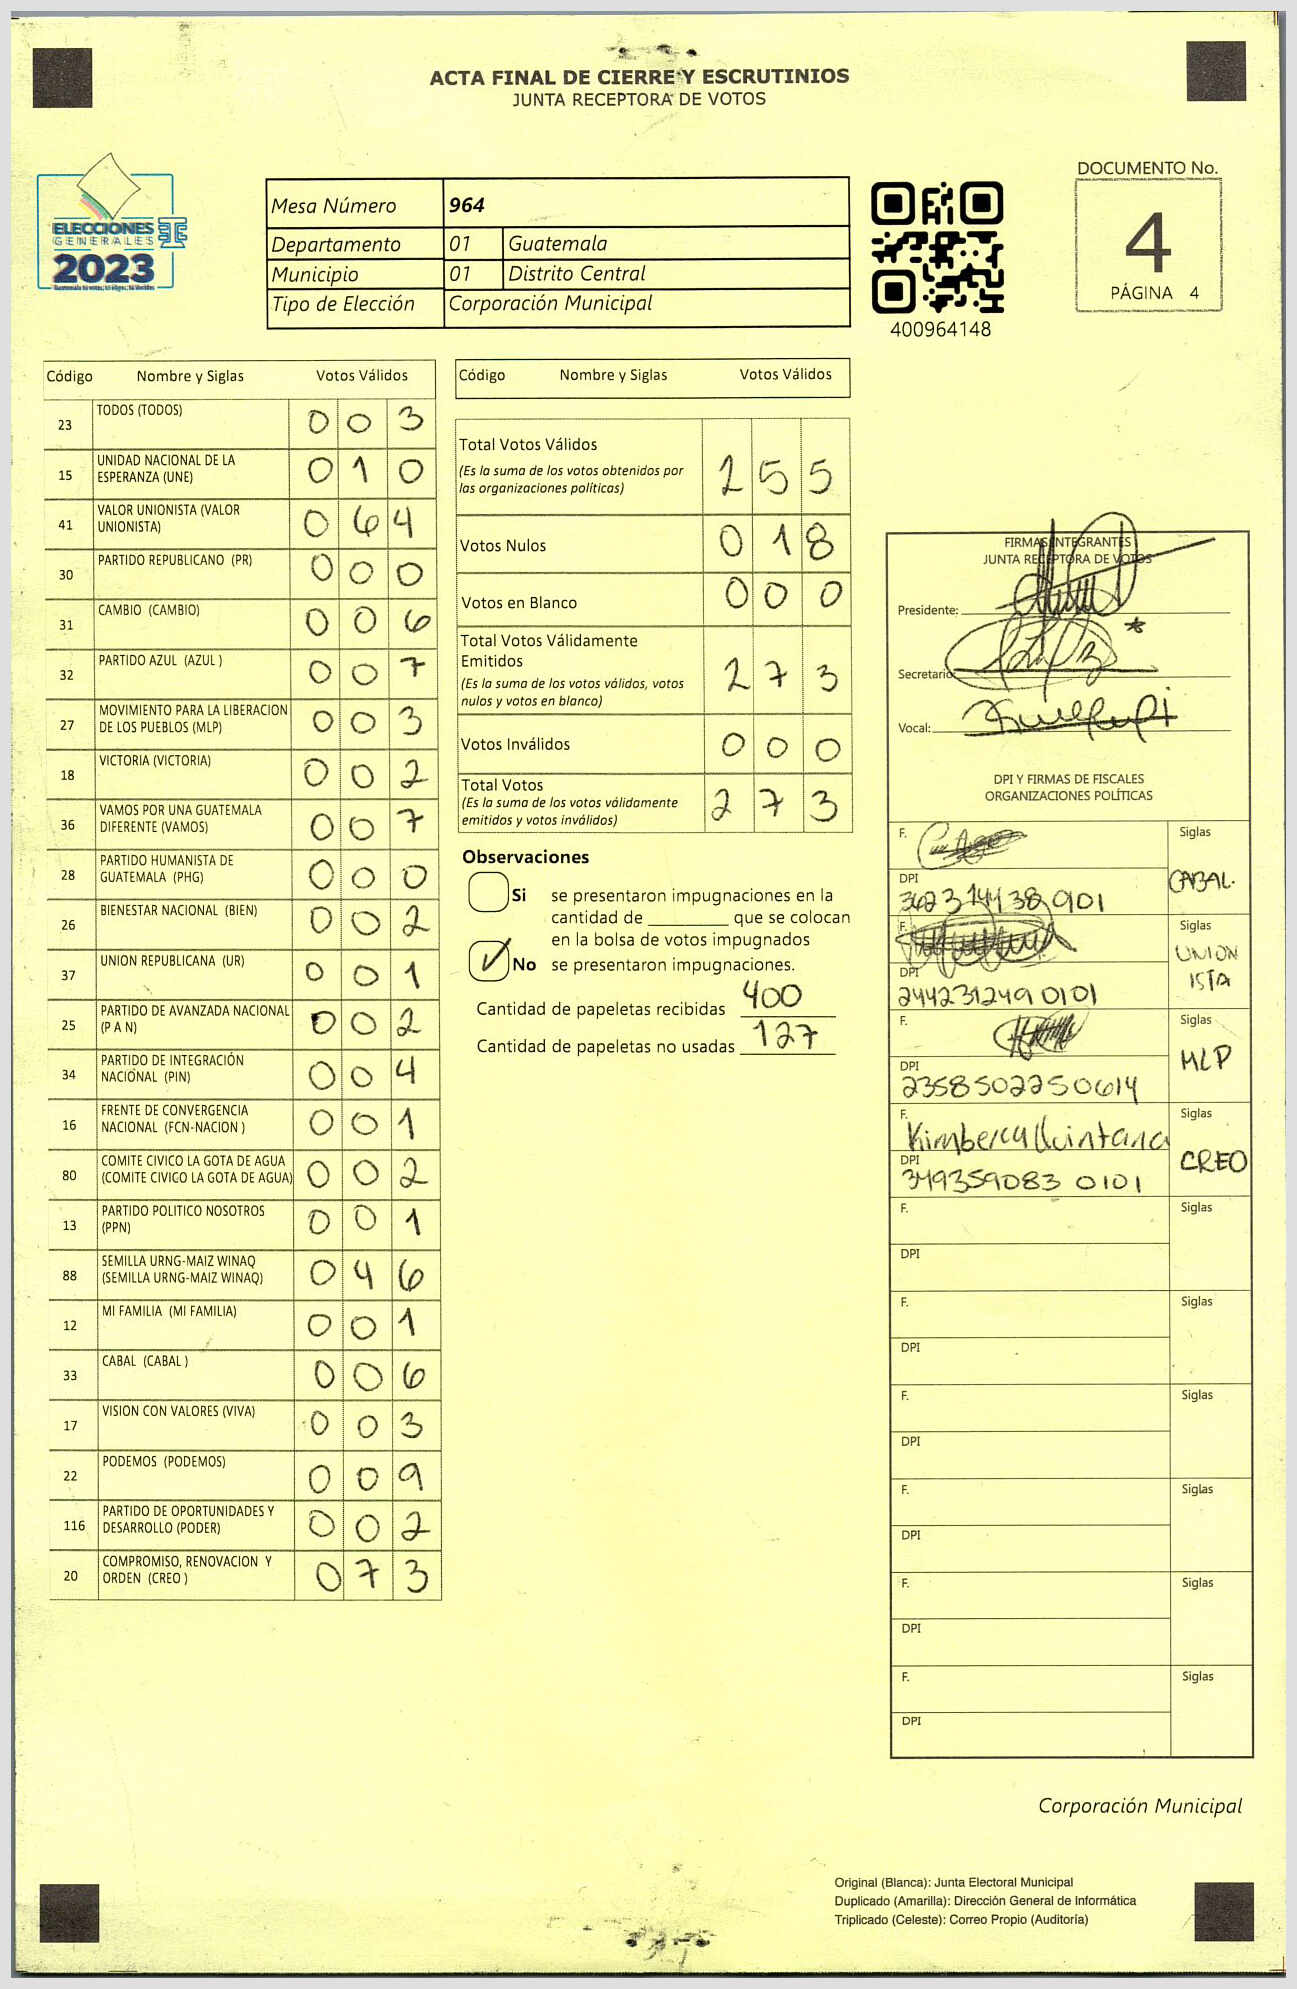 ACTA FINAL DE CIERRE Y ESCRUTINIOS
JUNTA RECEPTORA DE VOTOS
ELECCIONES
GENERALES
2023
Mesa Número 964
Departamento 01 Guatemala
Municipio 01 Distrito Central
Tipo de Elección Corporación Municipal
400964148
DOCUMENTO No.
4
PÁGINA 4
Código Nombre y Siglas Votos Válidos
23 TODOS (TODOS) 0 0 3
15 UNIDAD NACIONAL DE LA ESPERANZA (UNE) 0 1 0
41 VALOR UNIONISTA (VALOR UNIONISTA) 0 6 4
30 PARTIDO REPUBLICANO (PR) 0 0 0
31 CAMBIO (CAMBIO) 0 0 6
32 PARTIDO AZUL (AZUL ) 0 0 7
27 MOVIMIENTO PARA LA LIBERACION DE LOS PUEBLOS (MLP) 0 0 3
18 VICTORIA (VICTORIA) 0 0 2
36 VAMOS POR UNA GUATEMALA DIFERENTE (VAMOS) 0 0 7
28 PARTIDO HUMANISTA DE GUATEMALA (PHG) 0 0 0
26 BIENESTAR NACIONAL (BIEN) 0 0 2
37 UNION REPUBLICANA (UR) 0 0 1
25 PARTIDO DE AVANZADA NACIONAL (P A N) 0 0 2
34 PARTIDO DE INTEGRACIÓN NACIONAL (PIN) 0 0 4
16 FRENTE DE CONVERGENCIA NACIONAL (FCN-NACION ) 0 0 1
80 COMITE CIVICO LA GOTA DE AGUA (COMITE CIVICO LA GOTA DE AGUA) 0 0 2
13 PARTIDO POLITICO NOSOTROS (PPN) 0 0 1
88 SEMILLA URNG-MAIZ WINAQ (SEMILLA URNG-MAIZ WINAQ) 0 4 6
12 MI FAMILIA (MI FAMILIA) 0 0 1
33 CABAL (CABAL ) 0 0 6
17 VISION CON VALORES (VIVA) 0 0 3
22 PODEMOS (PODEMOS) 0 0 9
116 PARTIDO DE OPORTUNIDADES Y DESARROLLO (PODER) 0 0 2
20 COMPROMISO, RENOVACION Y ORDEN (CREO ) 0 7 3
Código Nombre y Siglas Votos Válidos
Total Votos Válidos 2 5 5
(Es la suma de los votos obtenidos por
las organizaciones políticas)
Votos Nulos 0 1 8
Votos en Blanco 0 0 0
Total Votos Válidamente
Emitidos 2 7 3
(Es la suma de los votos válidos, votos
nulos y votos en blanco)
Votos Inválidos 0 0 0
Total Votos 2 7 3
(Es la suma de los votos válidamente
emitidos y votos inválidos)
Observaciones
Si se presentaron impugnaciones en la
cantidad de ________ que se colocan
en la bolsa de votos impugnados
No se presentaron impugnaciones.
Cantidad de papeletas recibidas 400
Cantidad de papeletas no usadas 127
FIRMAS INTEGRANTES
JUNTA RECEPTORA DE VOTOS
Presidente:
Secretario:
Vocal:
DPI Y FIRMAS DE FISCALES
ORGANIZACIONES POLÍTICAS
F. Siglas
CABAL.
DPI
F. Siglas
UNION
ISTA
DPI
2442312490101
F. Siglas
MLP
DPI
2358502250614
F. Siglas
Quintana
CREO
DPI
349359083 0101
F. Siglas
DPI
F. Siglas
DPI
F. Siglas
DPI
F. Siglas
DPI
F. Siglas
DPI
F. Siglas
DPI
Corporación Municipal
Original (Blanca): Junta Electoral Municipal
Duplicado (Amarilla): Dirección General de Informática
Triplicado (Celeste): Correo Propio (Auditoría)